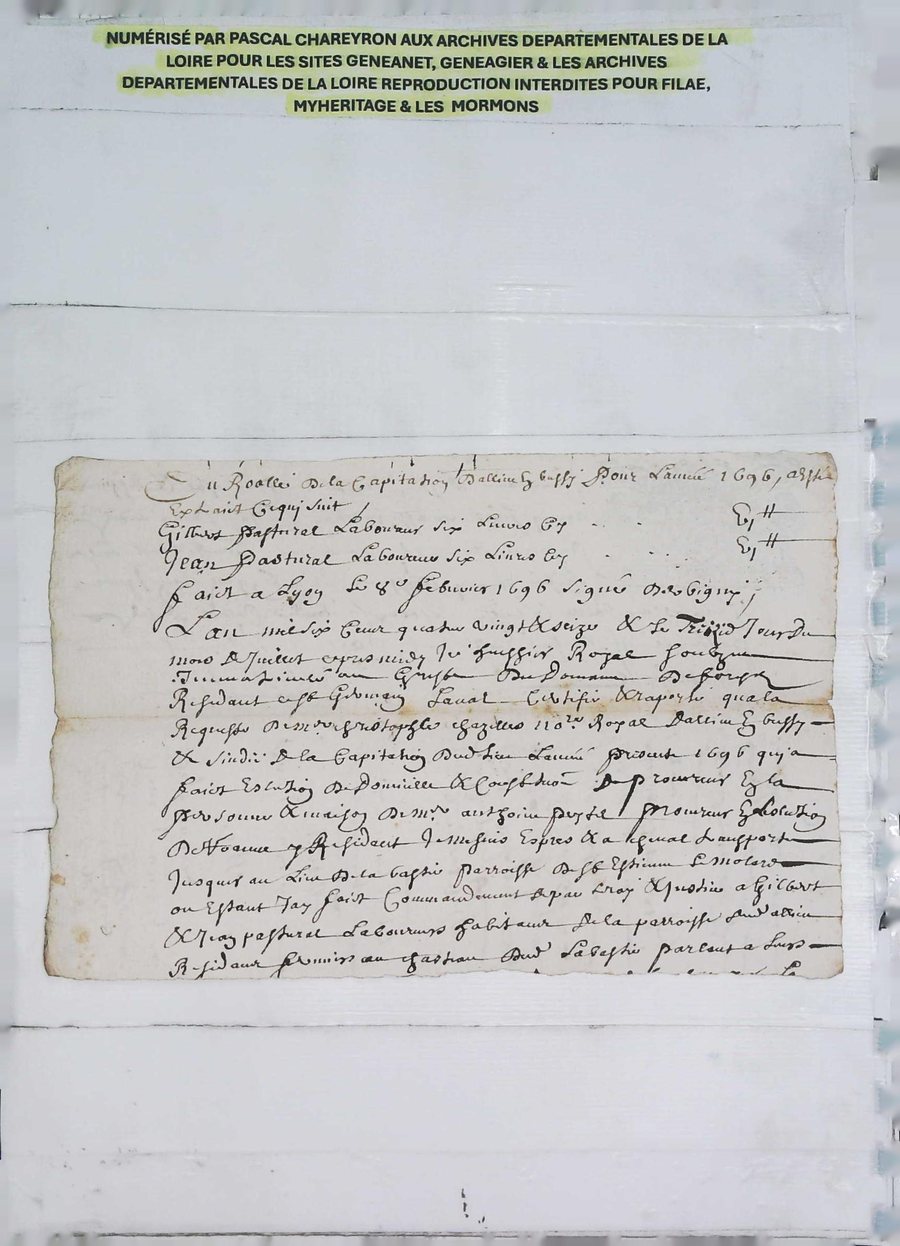 NUMÉRISÉ PAR PASCAL CHAREYRON AUX ARCHIVES DEPARTEMENTALES DE LA
LOIRE POUR LES SITES GENEANET, GENEAGIER & LES ARCHIVES
DEPARTEMENTALES DE LA LOIRE REPRODUCTION INTERDITES POUR FILAE,
MYHERITAGE & LES MORMONS
Du Roolle de la Capitation Pour Lannée 1696, a esté
Extraict Ce qui suit
Gilbert pastural Laboureur six Livres Cy
Jean Pastural Laboureur six Livres Cy
faict a Lyon le 8e febvrier 1696 signé
L'an mil six Cens quatre vingt & seize & le Jour du
mois de Juillet apres midy Je huissier Royal soubzne
Immatriculé au du Domaine
Residant a st Germain Laval Certifie & raporte qua la
Requeste de mre christophle chazelles no.re Royal
& sindic de la Capitation dudit lieu Lannée presente 1696 qui a
faict Eslection de Domicille & de procureur En la
personne & maison de mre anthoine procureur En Leslection
de Roanne y Residant Je me suis Expres & a cheval transporté
Jusques au Lieu de la bastie parroisse de st Estienne le molard
ou Estant Jay faict Commandement de par Le roy & justice a Gilbert
& Jean pastural Laboureurs habitans de la parroisse
Residans fermiers au chasteau dud Labastie parlant a Leurs